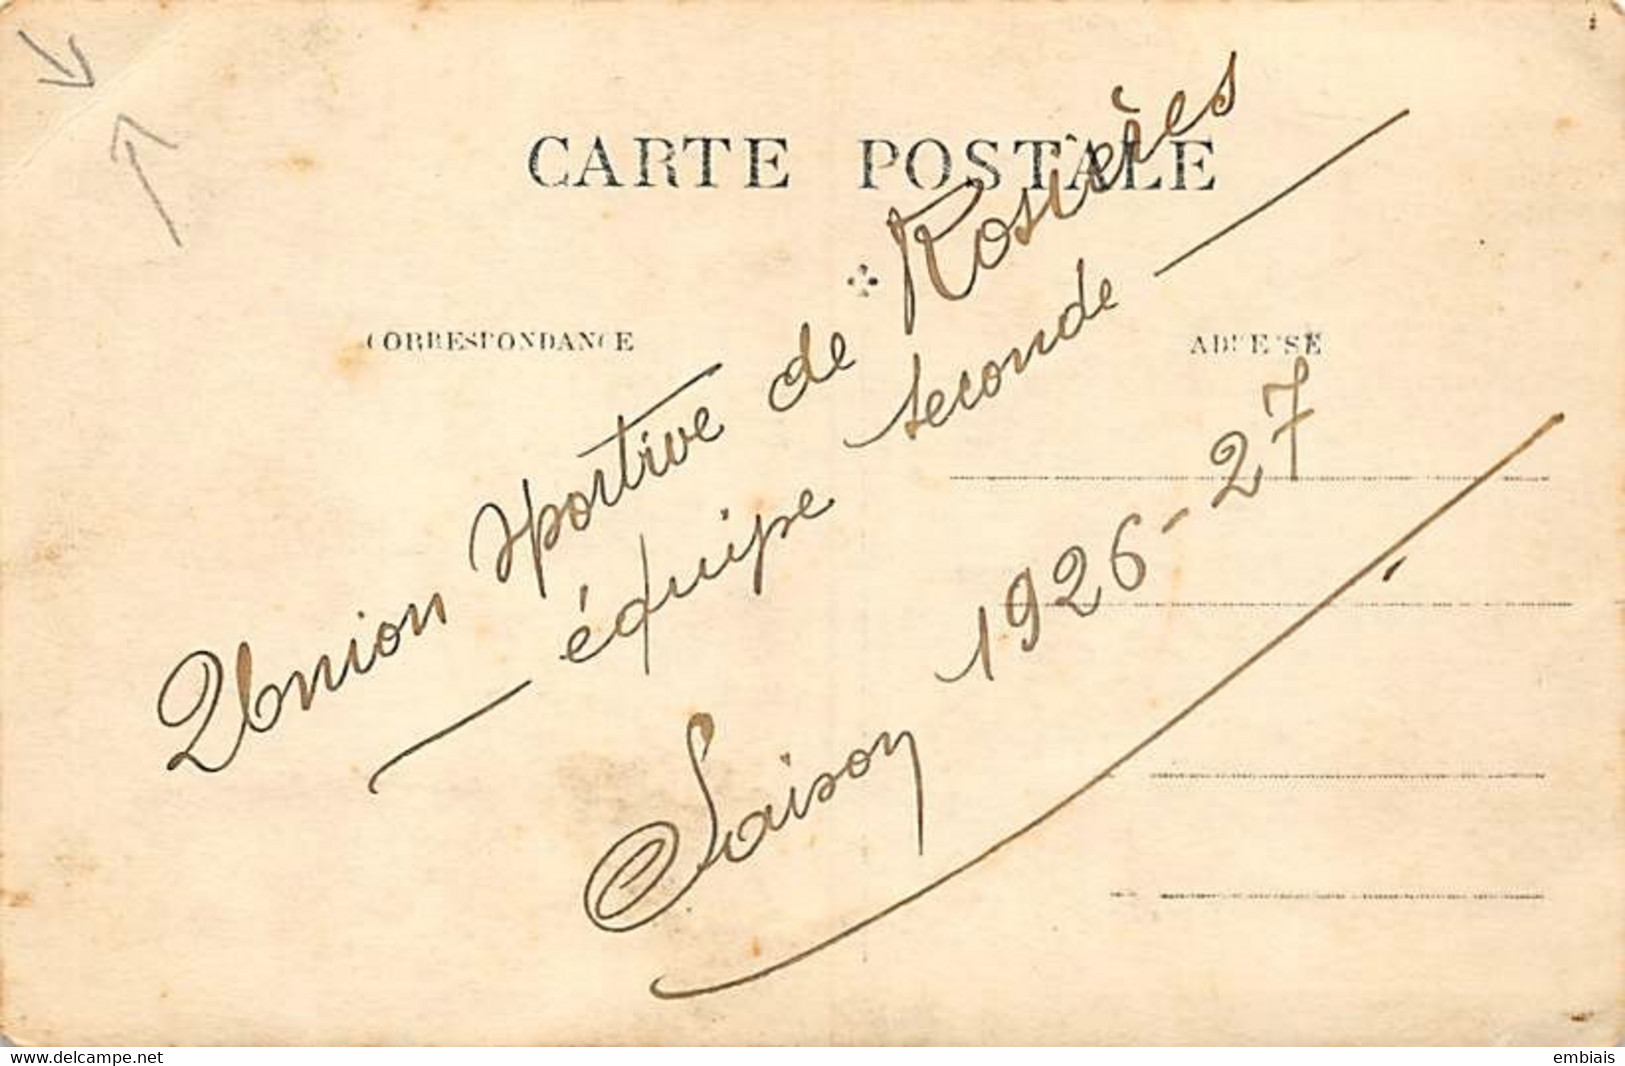 CARTE POSTALE
CORRESPONDANCE
ADRESSE
Union sportive de Rosières
équipe seconde
Saison 1926-27
www.delcampe.net
embiais